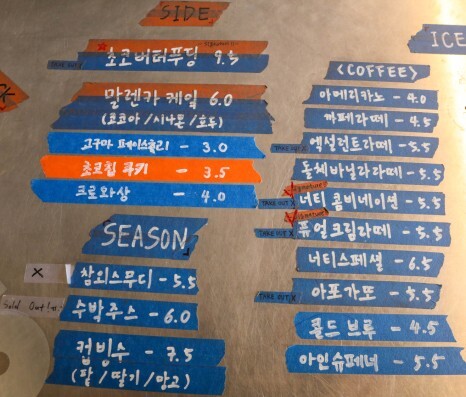 SIDE
signature
초코버터푸딩 9.5
TAKE OUT X
말렌카 케잌 6.0
(코코아/시나몬/호두)
고구마 - 3.0
초코칩 쿠키 - 3.5
크로와상 - 4.0
SEASON
X
참외스무디 - 5.5
Sold Out
수박주스 - 6.0
컵빙수 - 7.5
(팥/딸기/망고)
ICE
<COFFEE>
아메리카노 - 4.0
까페라떼 - 4.5
TAKE OUT X
엑설런트라떼 - 5.5
돌체바닐라라떼 - 5.5
signature
TAKE OUT X
너티 콤비네이션 - 5.5
signature
TAKE OUT X
퓨얼크림라떼 - 5.5
너티스페셜 - 6.5
TAKE OUT X
아포가또 - 5.5
콜드 브루 - 4.5
아인슈페너 - 5.5